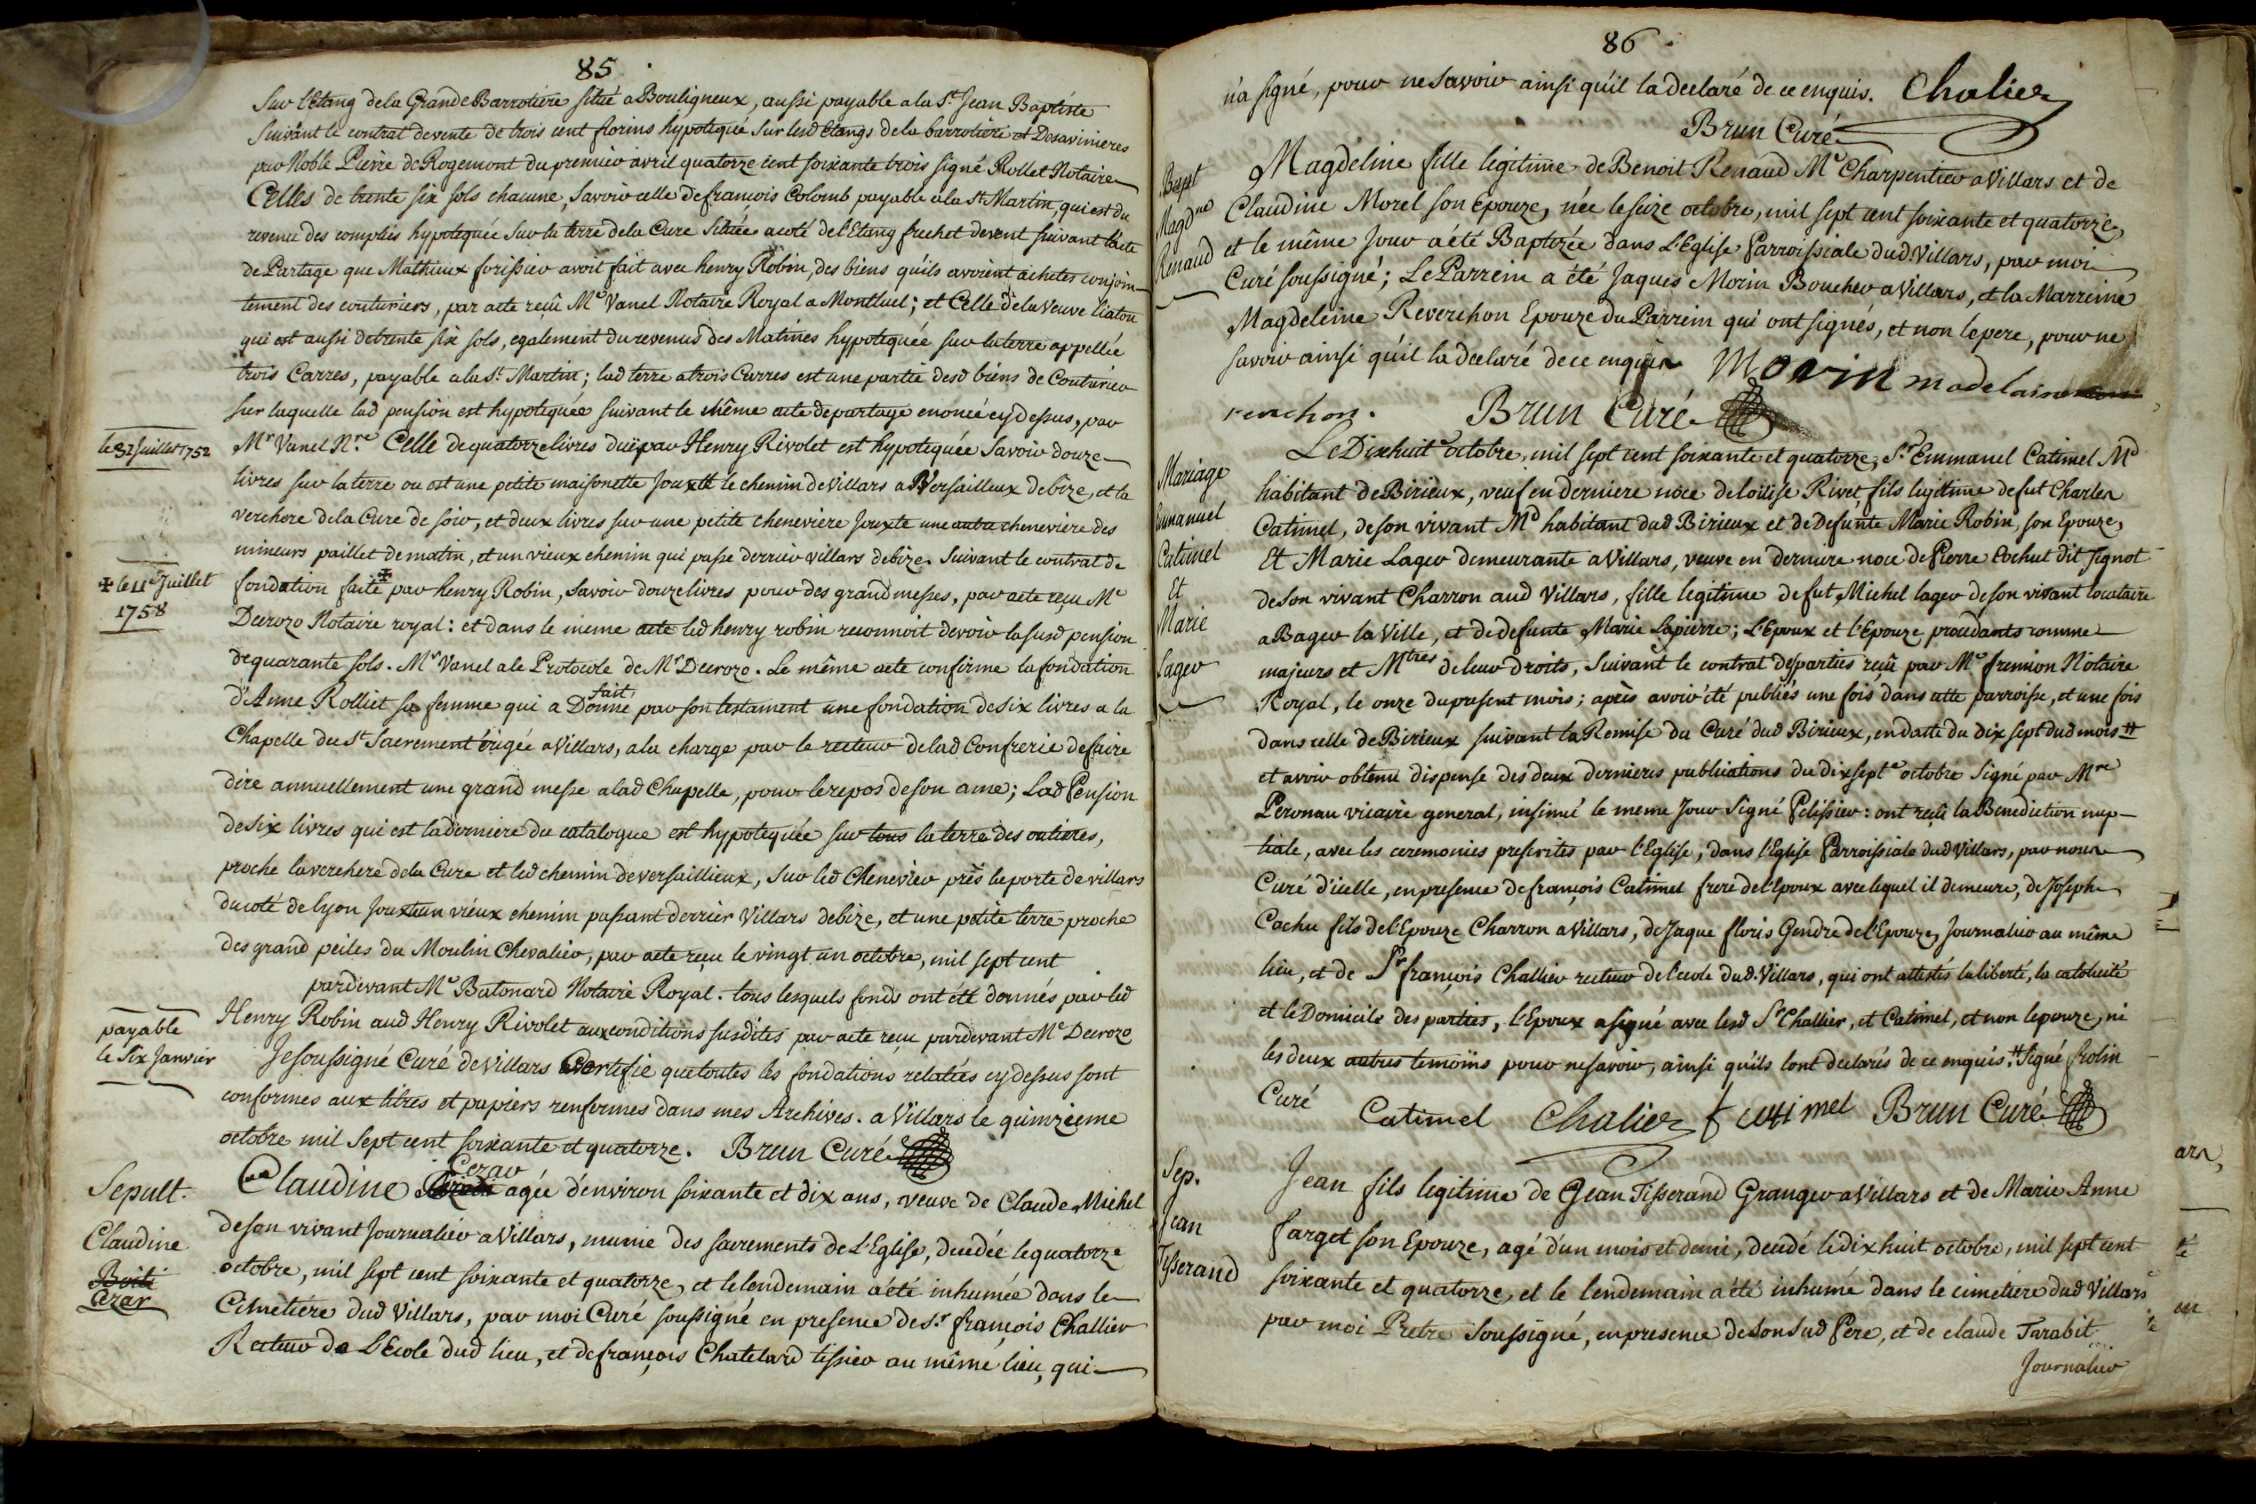 85
Sur l'Etang de la Grande Barrotiere situé a Bouligneux, aussi payable a la St Jean Baptiste
suivant le contrat de vente de trois cent florins hypotequé sur lesd Etangs de la barrotiere et Desavinieres
par Noble Pierre de Rogemont du premier avril quatorze cent soixante trois signé Rollet Notaire
Celles de trente six sols chacune, savoir celle de françois Colomb payable a la St Martin, qui est du
revenu des complies hypotequée sur la terre de la Cure située a coté de l'Etang frechet devent suivant l'acte
de Partage que Mathieux forissier avoit fait avec henry Robin, des biens qu'ils avoient achetes conjoin-
tement des couturiers, par acte reçû Me Vanel Notaire Royal a Montluel; et Celle de la veuve liaton
qui est aussi de trente six sols, egalement du revenus des Matines hypotequée sur la terre appellée
trois Carres, payable a la St Martin; lad terre a trois Carres est une partie desd biens de Couturier
sur laquelle lad pension est hypotequée suivant le même acte de partage enoncé cy dessus, par
le 31 Juillet 1752
Mr Vanel Nre. Celle de quatorze livres duë par Henry Rivolet est hypotequée Savoir douze
livres sur la terre ou est une petite maisonette Jouxte le chemin de Villars a Versailleux de bize, et la
verchere de la Cure de soir, et deux livres sur une petite cheneviere Jouxte une autre cheneviere des
mineurs paillet de matin, et un vieux chemin qui passe derrier villars de bize. Suivant le contrat de
✠ le 11e Juillet
1758
fondation faite ✠ par henry Robin, savoir douze livres pour des grand messes, par acte reçu Me
Decrozo Notaire royal: et dans le meme acte led henry robin reconnoit devoir la susd pension
de quarante sols. Mr Vanel a le Protocole de Mr Decrozo. Le même acte confirme la fondation
d'Anne Rolliet sa femme qui a Donné fait par son testament une fondation de six livres a la
Chapelle du St Sacrement érigée a Villars, a la charge par le recteur de lad Confrerie de faire
dire annuellement une grand messe a lad Chapelle, pour le repos de son ame; Lad Pension
de six livres qui est la derniere du catalogue est hypotequée sur tous la terre des outieres,
proche la verchere de la Cure et led chemin de versaillieux, sur led Chenevier près la porte de villars
du coté de lyon Jouxte un vieux chemin passant derrier Villars de bize, et une petite terre proche
des grand peiles du Moulin Chevalier, par acte reçu le vingt un octobre, mil sept cent
pardevant Me Batonard Notaire Royal. tous lesquels fonds ont été donnés par led
payable
le six Janvier
Henry Robin aud Henry Rivolet aux conditions susdites par acte reçu pardevant Me Decrozo
Je soussigné Curé de Villars Certifie que toutes les fondations relatées cy dessus sont
conformes aux titres et papiers renfermes dans mes Archives. a Villars le quinzieme
octobre mil sept cent soixante et quatorze. Brun Curé
Sepult.
Claudine
Azar
Claudine Cezar agée d'environ soixante et dix ans, veuve de Claude Michel
de son vivant Journalier a Villars, munie des sacrements de L'Eglise, decedée le quatorze
octobre, mil sept cent soixante et quatorze, et le lendemain a été inhumée dans le
Cimetiére dud Villars, par moi Curé soussigné en presence de Sr françois Challier
Recteur de L'Ecole dud lieu, et de françois Chatelard tissier au même lieu, qui
86
n'a signé, pour ne savoir ainsi qu'il la declaré de ce enquis. Chalier
Brun Curé
Bapt
Magdne
Renaud
Magdeline fille legitime de Benoit Renaud Me Charpentier a Villars et de
Claudine Morel son Epouze, née le seize octobre, mil sept cent soixante et quatorze,
et le même Jour a été Baptizée dans L'Eglise Parroissiale dud Villars, par moi
Curé soussigné; Le Parrein a été Jaques Morin Boucher a Villars, et la Marreine
Magdeleine Reverchon Epouze du Parrein qui ont signés, et non le pere, pour ne
savoir ainsi qu'il la declaré de ce enquis Morin madelaine
rerchon. Brun Curé
Mariage
Emmanuel
Catimel
Et
Marie
Lager
Le Dixhuit octobre, mil sept cent soixante et quatorze, Sr Emmanuel Catimel Md
habitant de Birieux, veuf en derniere noce de loüise Rivet fils legitime de fut Charles
Catimel, de son vivant Md habitant dud Birieux et de Defunte Marie Robin, son Epouze,
Et Marie Lager demeurante a Villars, veuve en derniere noce de Pierre Cochut dit Jignot
de son vivant Charron aud Villars, fille legitime de fut Michel lager de son vivant locataire
a Bager la Ville, et de defunte Marie Lapierre; L'Epoux et l'Epouze procedants comme
majeurs et Mtres de leur droits, suivant le contrat des parties reçû par Me fremion Notaire
Royal, le onze du present mois; après avoir été publiés une fois dans cette parroisse, et une fois
dans celle de Birieux suivant la Remise du Curé dud Birieux, en datte du dix sept dud mois #
et avoir obtenu dispense des deux dernieres publications du dix septe octobre signé par Mre
Peronau vicaire general, insinué le meme Jour signé Pelissier: ont reçû la Benediction nup-
tiale, avec les ceremonies prescrites par l'Eglise, dans l'Eglise Parroissiale dud Villars, par nous
Curé d'icelle, en presence de françois Catimel frere de l'Epoux avec lequel il demeure, de Joseph
Cachu fils de l'Epouze Charron a Villars, de Jaque floris Gendre de l'Epouze, Journalier au même
lieu, et de Sr françois Challier recteur de l'ecole dud. Villars, qui ont attestés la liberté, la catolicité
et le Domicile des parties, l'Epoux a signé avec lesd Sr Challier, et Catimel, et non lepouze, ni
les deux autres temoins pour ne savoir, ainsi qu'ils l'ont declarés de ce enquis. # Signé frolin
Curé Catimel Chalier f catimel Brun Curé
Sep.
Jean
Tisserand
Jean fils legitime de Jean Tisserand Granger a Villars et de Marie Anne
farget son Epouze, agé d'un mois et demi, decedé le dixhuit octobre, mil sept cent
soixante et quatorze, et le lendemain a été inhumé dans le cimetiere dud Villars
par moi Pretre soussigné, en presence de son sud Pere, et de claude Tarabit
Journalier